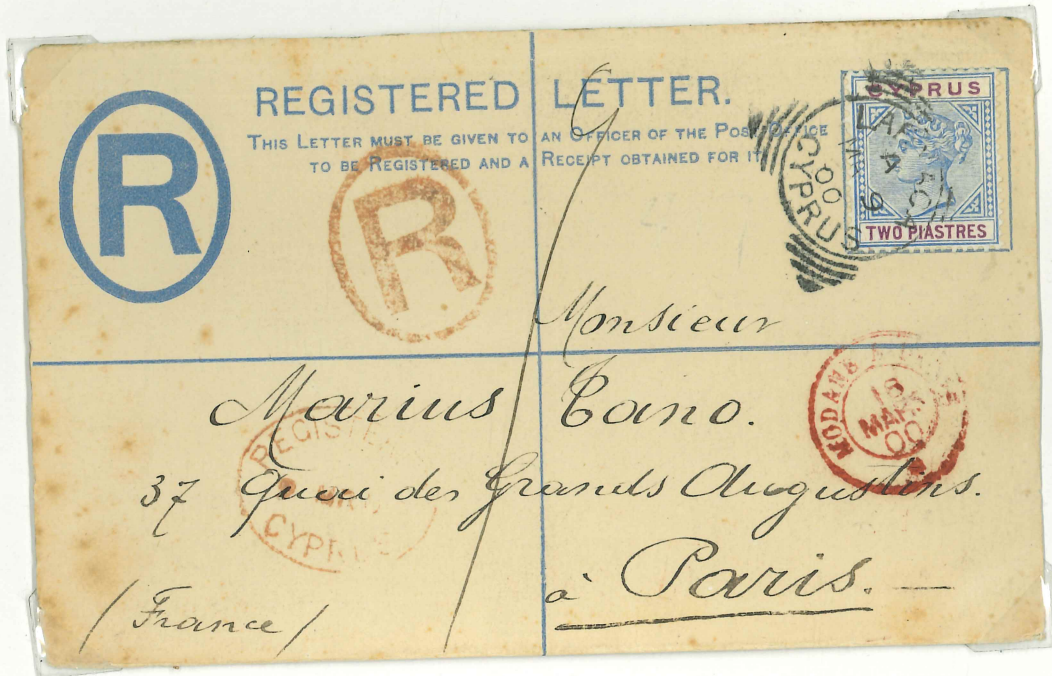 REGISTERED LETTER.
THIS LETTER MUST BE GIVEN TO AN OFFICER OF THE POST OFFICE
TO BE REGISTERED AND A RECEIPT OBTAINED FOR IT
R
R
CYPRUS
TWO PIASTRES
LARNACA
A
MR 9
00
CYPRUS
Monsieur
Marius Tano.
37 Quai des Grands Augustins.
à Paris. —
(France)
MODANE
18
MARS
00
REGISTERED
CYPRUS